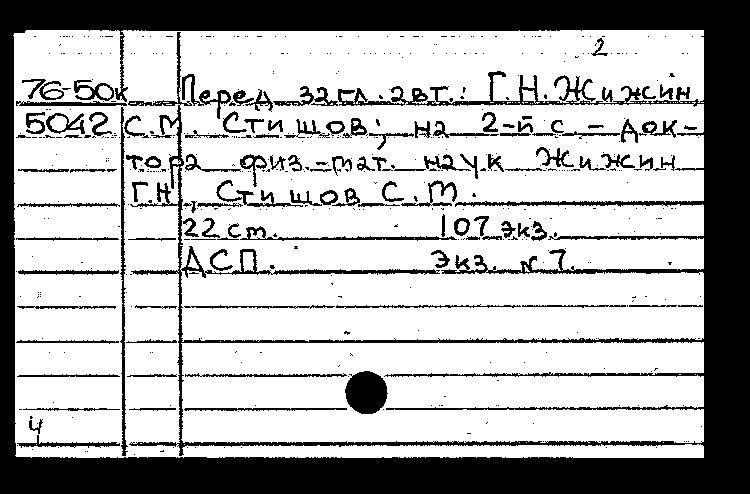 2
76-50к Перед загл. авт.: Г.Н. Жижин,
5042 С.М. Стишов; на 2-й с. – док-
тора физ.-мат. наук Жижин
Г.Н., Стишов С.М.
22 см. 107 экз.
ДСП. Экз. N 7.
4